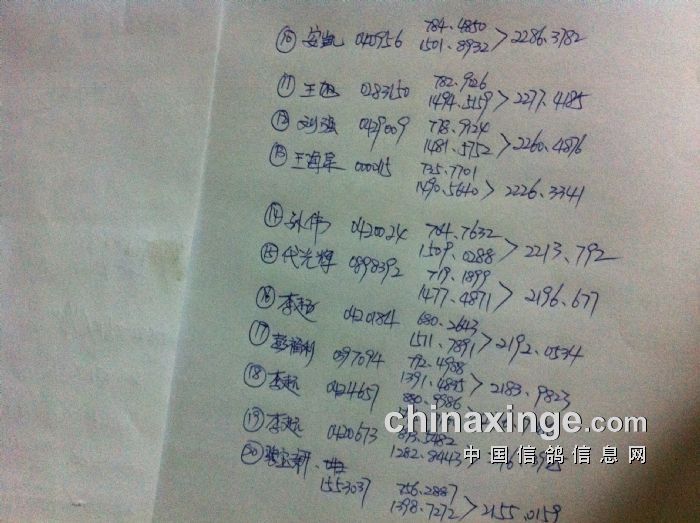 ⑩ 安凯 040956 784.4850
1501.8932 > 2286.3782
⑪ 王旭 0283150 782.926
1494.5159 > 2277.4185
⑫ 刘强 0429009 778.9124
1481.5752 > 2260.4876
⑬ 王海军 000015 735.7701
1490.5640 > 2226.3341
⑭ 孙伟 0420024 704.7632
1509.0288 > 2213.792
⑮ 代光辉 0898392 719.1899
1477.4871 > 2196.677
⑯ 李 0420184 680.2643
1511.7891 > 2192.0534
⑰ 彭福利 0397094 792.4988
1391.4835 > 2183.9823
⑱ 李 0424657 880.9986
⑲ 李 0420673 893.5482
1282.8443 >
⑳
1553037 756.2887
1398.7272 > 2155.0159
chinaxinge.com
中国信鸽信息网